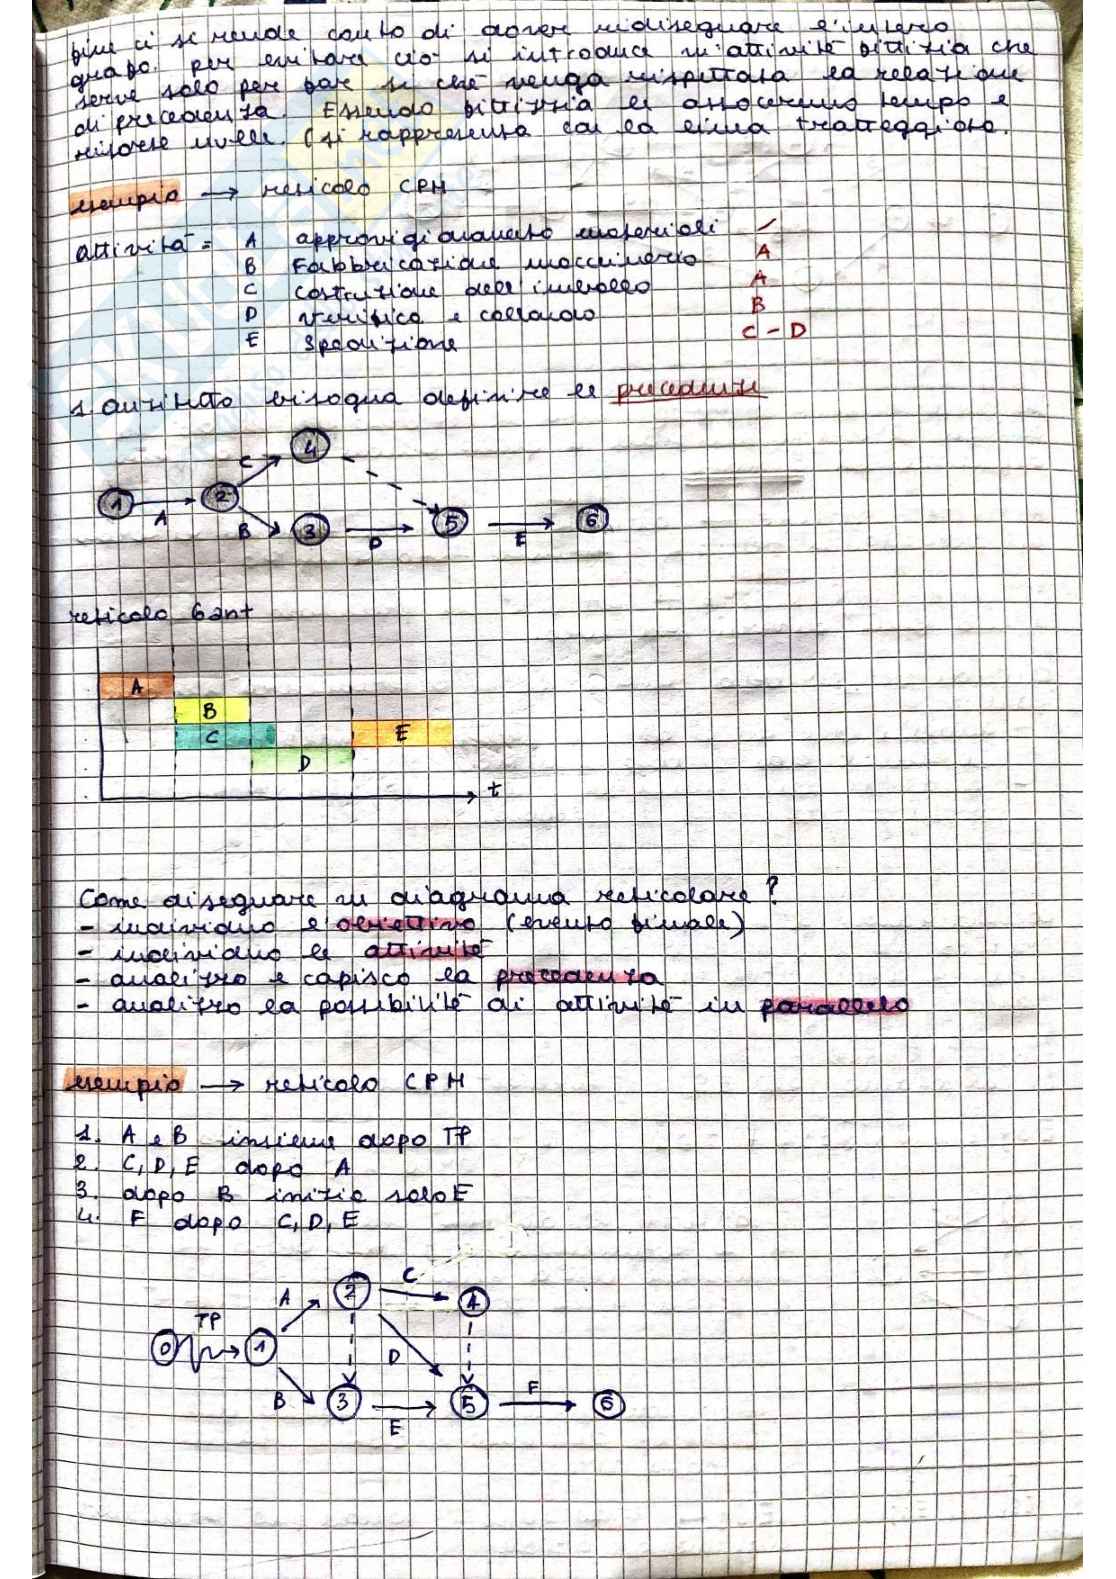 fine ci si rende conto di dover ridisegnare l'intero
grafo. per evitare ciò si introduce un'attività fittizia che
serve solo per far sì che venga rispettata la relazione
di precedenza. Essendo fittizia le associamo tempo e
risorse nulle. (si rappresenta con la linea tratteggiata.
esempio → reticolo CPM
attività = A approvigionamento materiali /
B Fabbricazione macchinario A
C costruzione dell'imballo A
D verifica e collaudo B
E spedizione C - D
1 anzitutto bisogna definire le precedenze
1 A 2 C 4 B 3 D 5 E 6
reticolo Gant
A
B
C E
D
t
Come disegnare un diagramma reticolare?
- individuo l'obiettivo (evento finale)
- individuo le attività
- analizzo e capisco la precedenza
- analizzo la possibilità di attività in parallelo
esempio → reticolo CPM
1. A e B insieme dopo TP
2. C, D, E dopo A
3. dopo B inizia solo E
4. F dopo C, D, E
A 2 C 4
0 TP 1 D
B 3 E 5 F 6